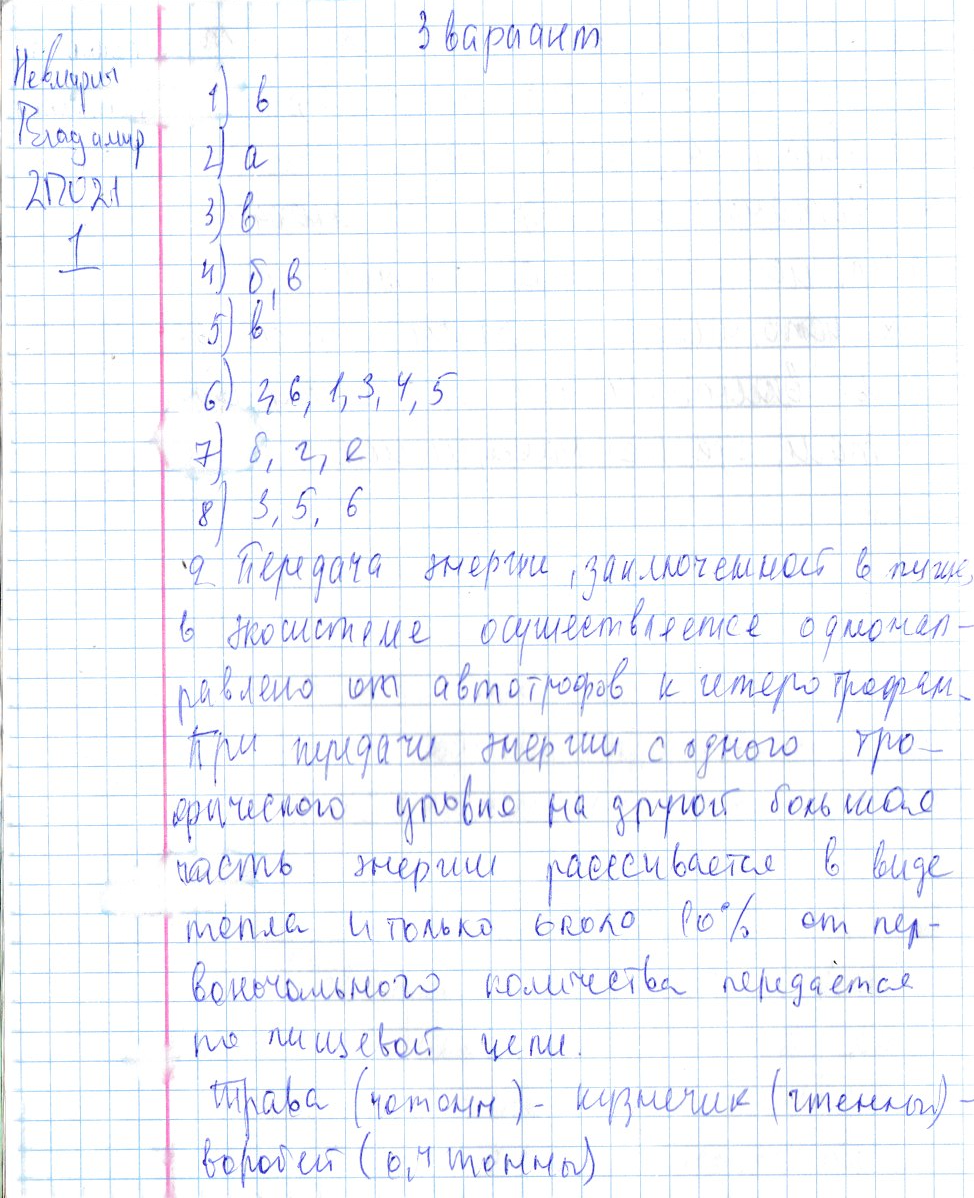 3 вариант
Владимир
2П021
1
1) в
2) а
3) в
4) б, в
5) в
6) 2, 6, 1, 3, 4, 5
7) б, г, е
8) 3, 5, 6
9 Передача энергии, заключенной в пище,
в экосистеме осуществляется однонап-
равлено от автотрофов к гетеротрофам.
При передачи энергии с одного тро-
фического уровня на другой большая
часть энергии рассеивается в виде
тепла и только около 10% от пер-
воночального количества передаётся
по пищевой цепи.
Трава (40тонн) - кузнечик (4тонны) -
воробей (0,4 тонны)